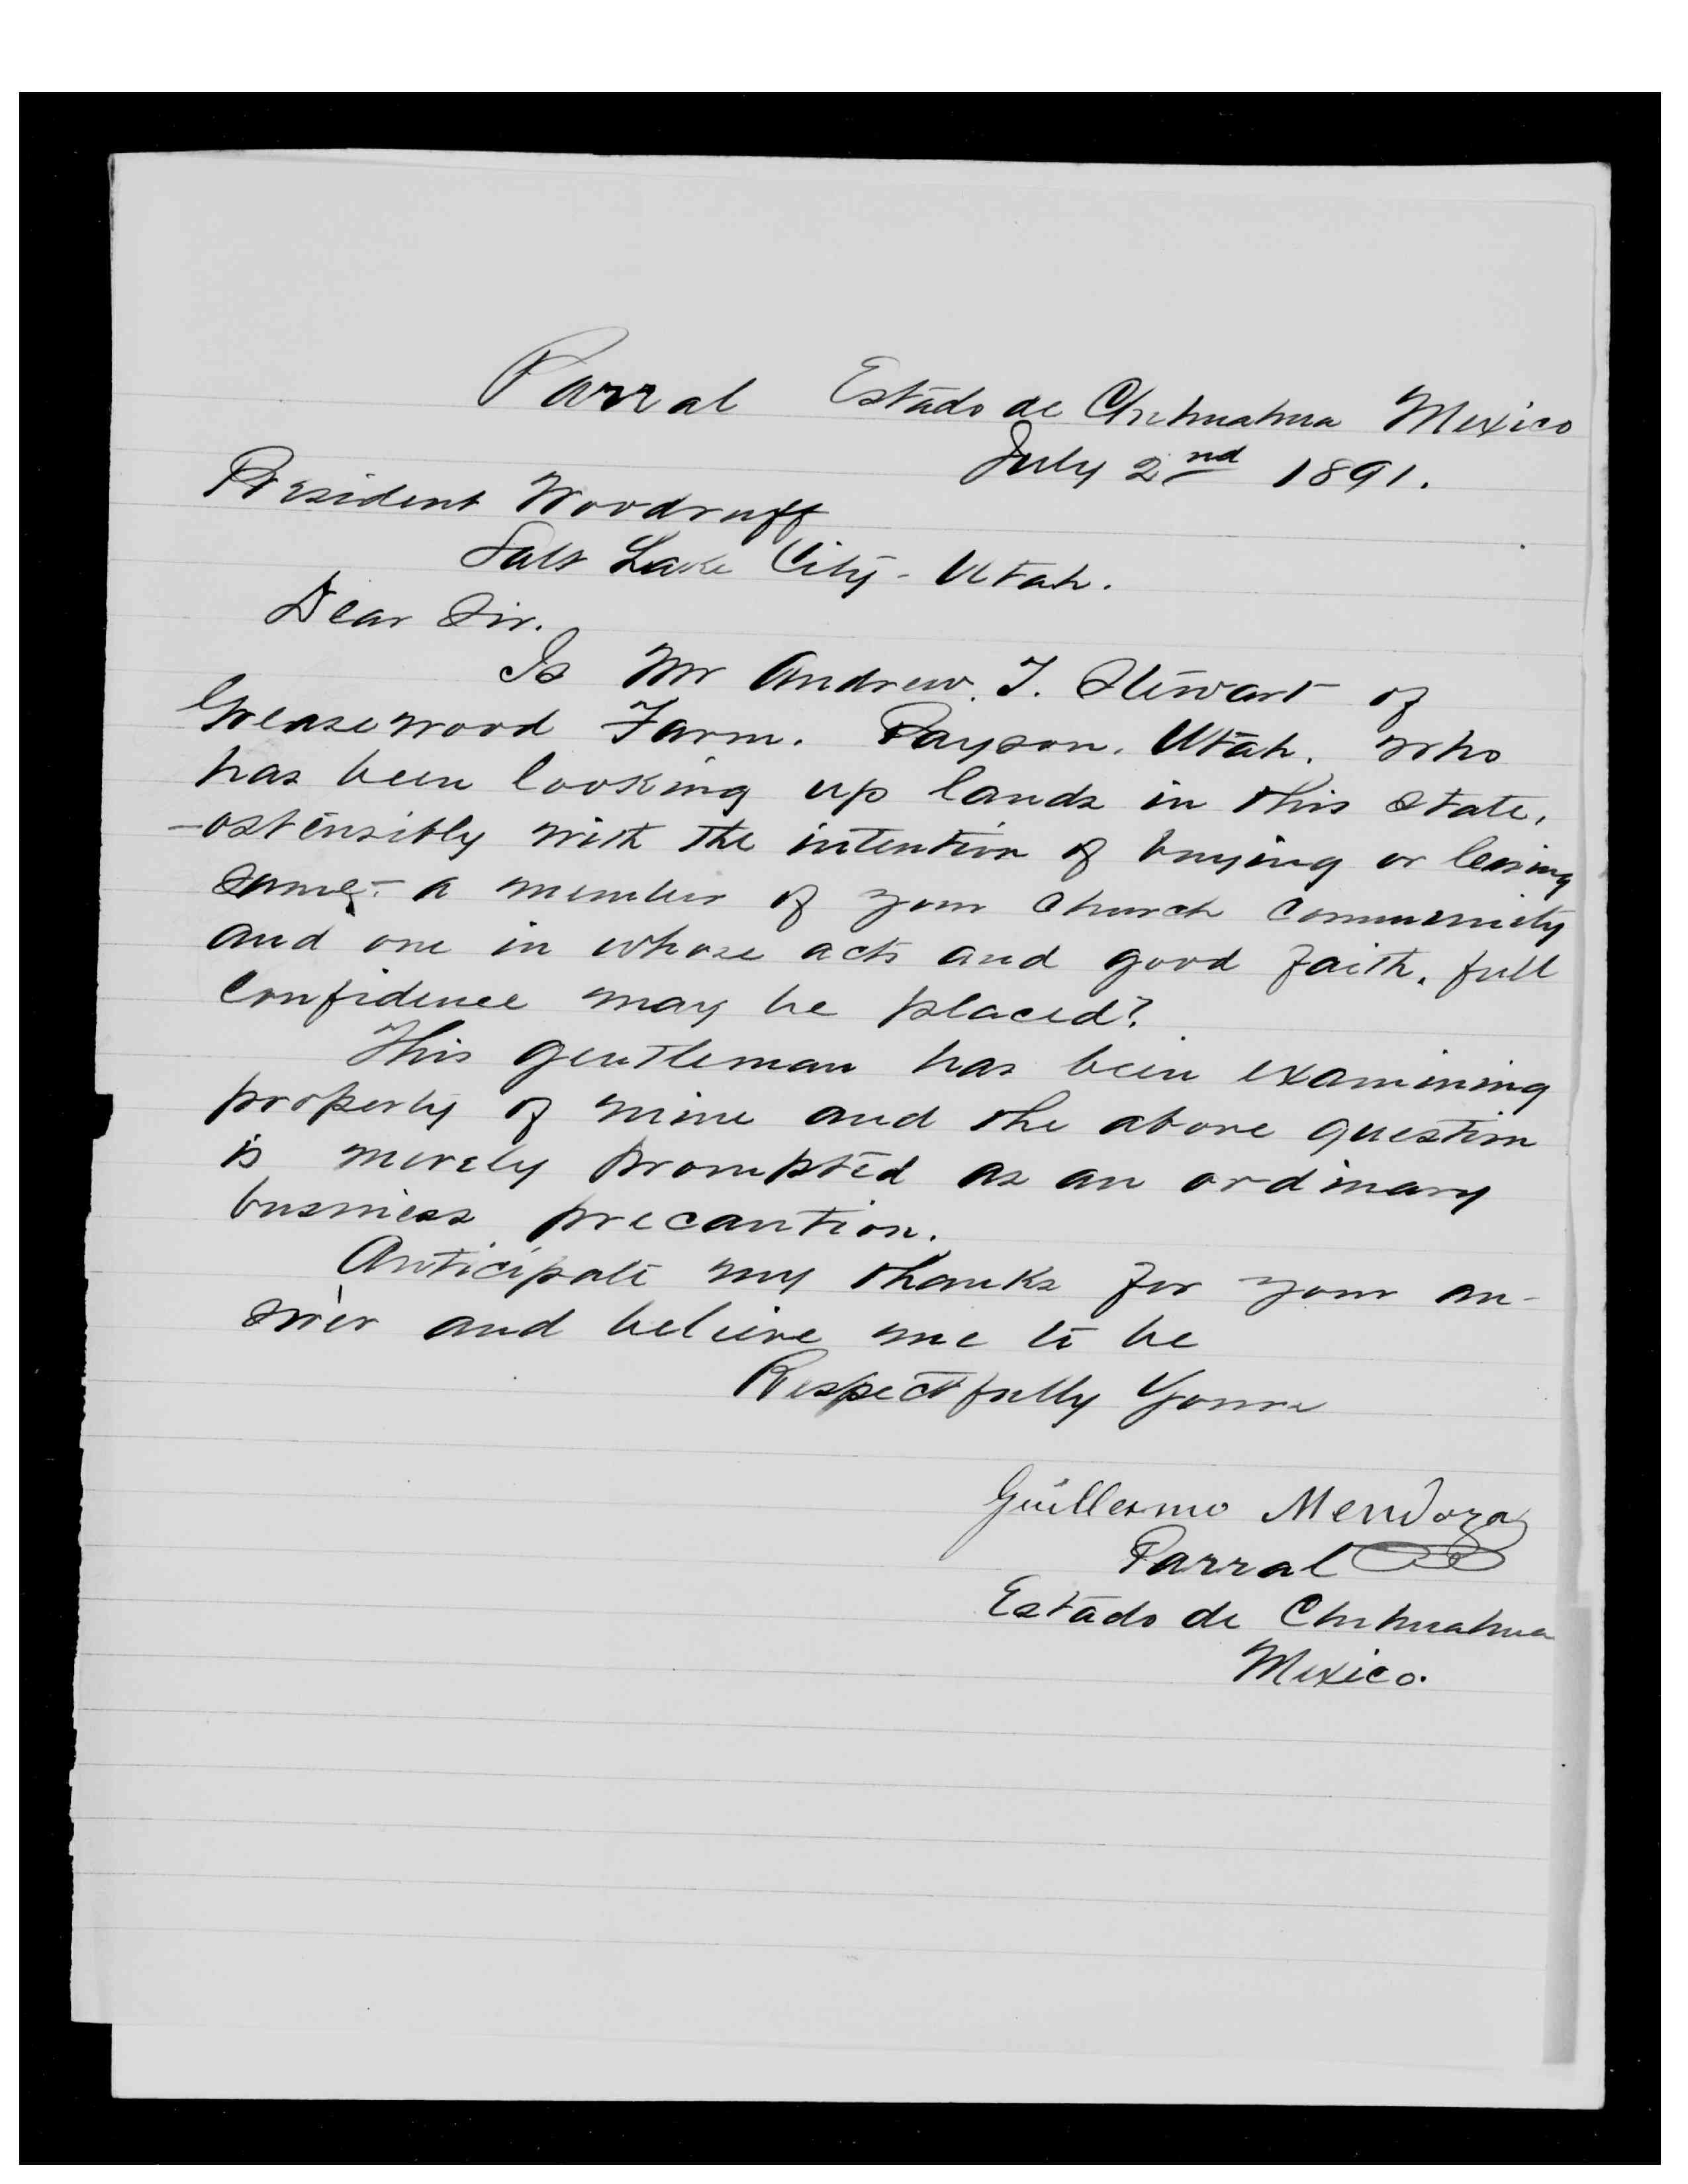 Parral Estado de Chihuahua Mexico
July 2nd 1891.
President Woodruff
Salt Lake City - Utah.
Dear Sir.
Is Mr Andrew. J. Stewart of
Greasewood Farm. Payson. Utah. who
has been looking up lands in this State,
-ostensibly with the intention of buying or leasing
same,- a member of your Church Community
and one in whose acts and good faith, full
confidence may be placed?
This gentleman has been examining
property of mine and the above question
is merely prompted as an ordinary
business precaution.
Anticipate my thanks for your an-
swer and believe me to be
Respectfully Yours
Guillermo Mendoza
Parral
Estado de Chihuahua
Mexico.